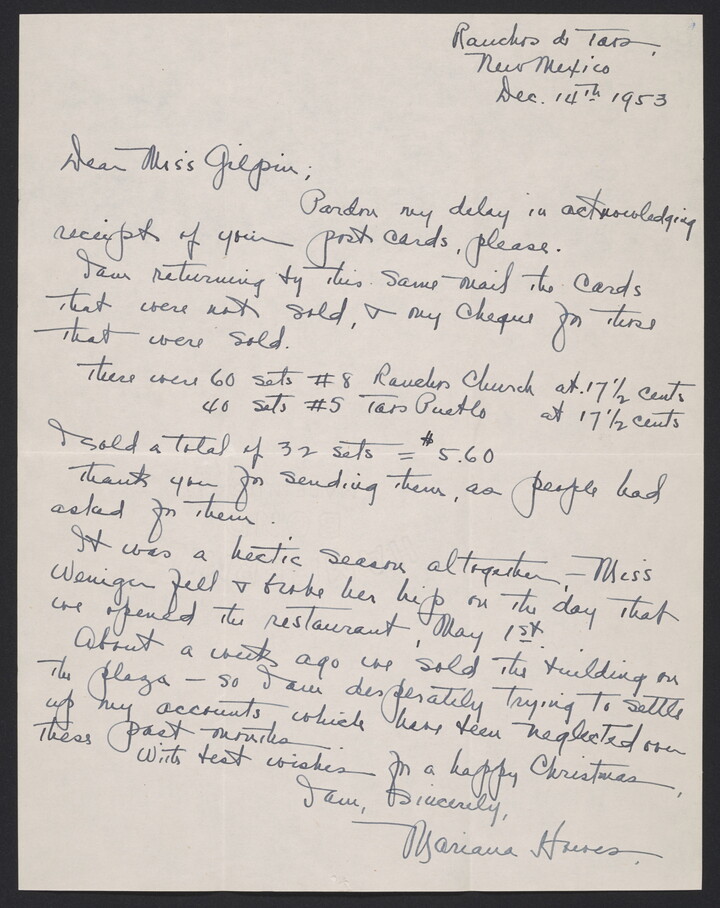 Ranchos de Taos,
New Mexico
Dec. 14th 1953
Dear Miss Gilpin;
Pardon my delay in acknowledging
receipt of your post cards, please.
I am returning by this same mail the cards
that were not sold, & my cheque for those
that were sold.
There were 60 sets #8 Ranchos Church at 17 1/2 cents
40 sets #5 Taos Pueblo at 17 1/2 cents
I sold a total of 32 sets = $5.60
Thank you for sending them, as people had
asked for them.
It was a hectic season altogether, — Miss
Weniger fell & broke her hip on the day that
we opened the restaurant, May 1st.
About a week ago we sold the building on
the plaza — so I am desperately trying to settle
up my accounts which have been neglected over
these past months.
With best wishes for a happy Christmas,
I am, Sincerely,
Mariana Howes.